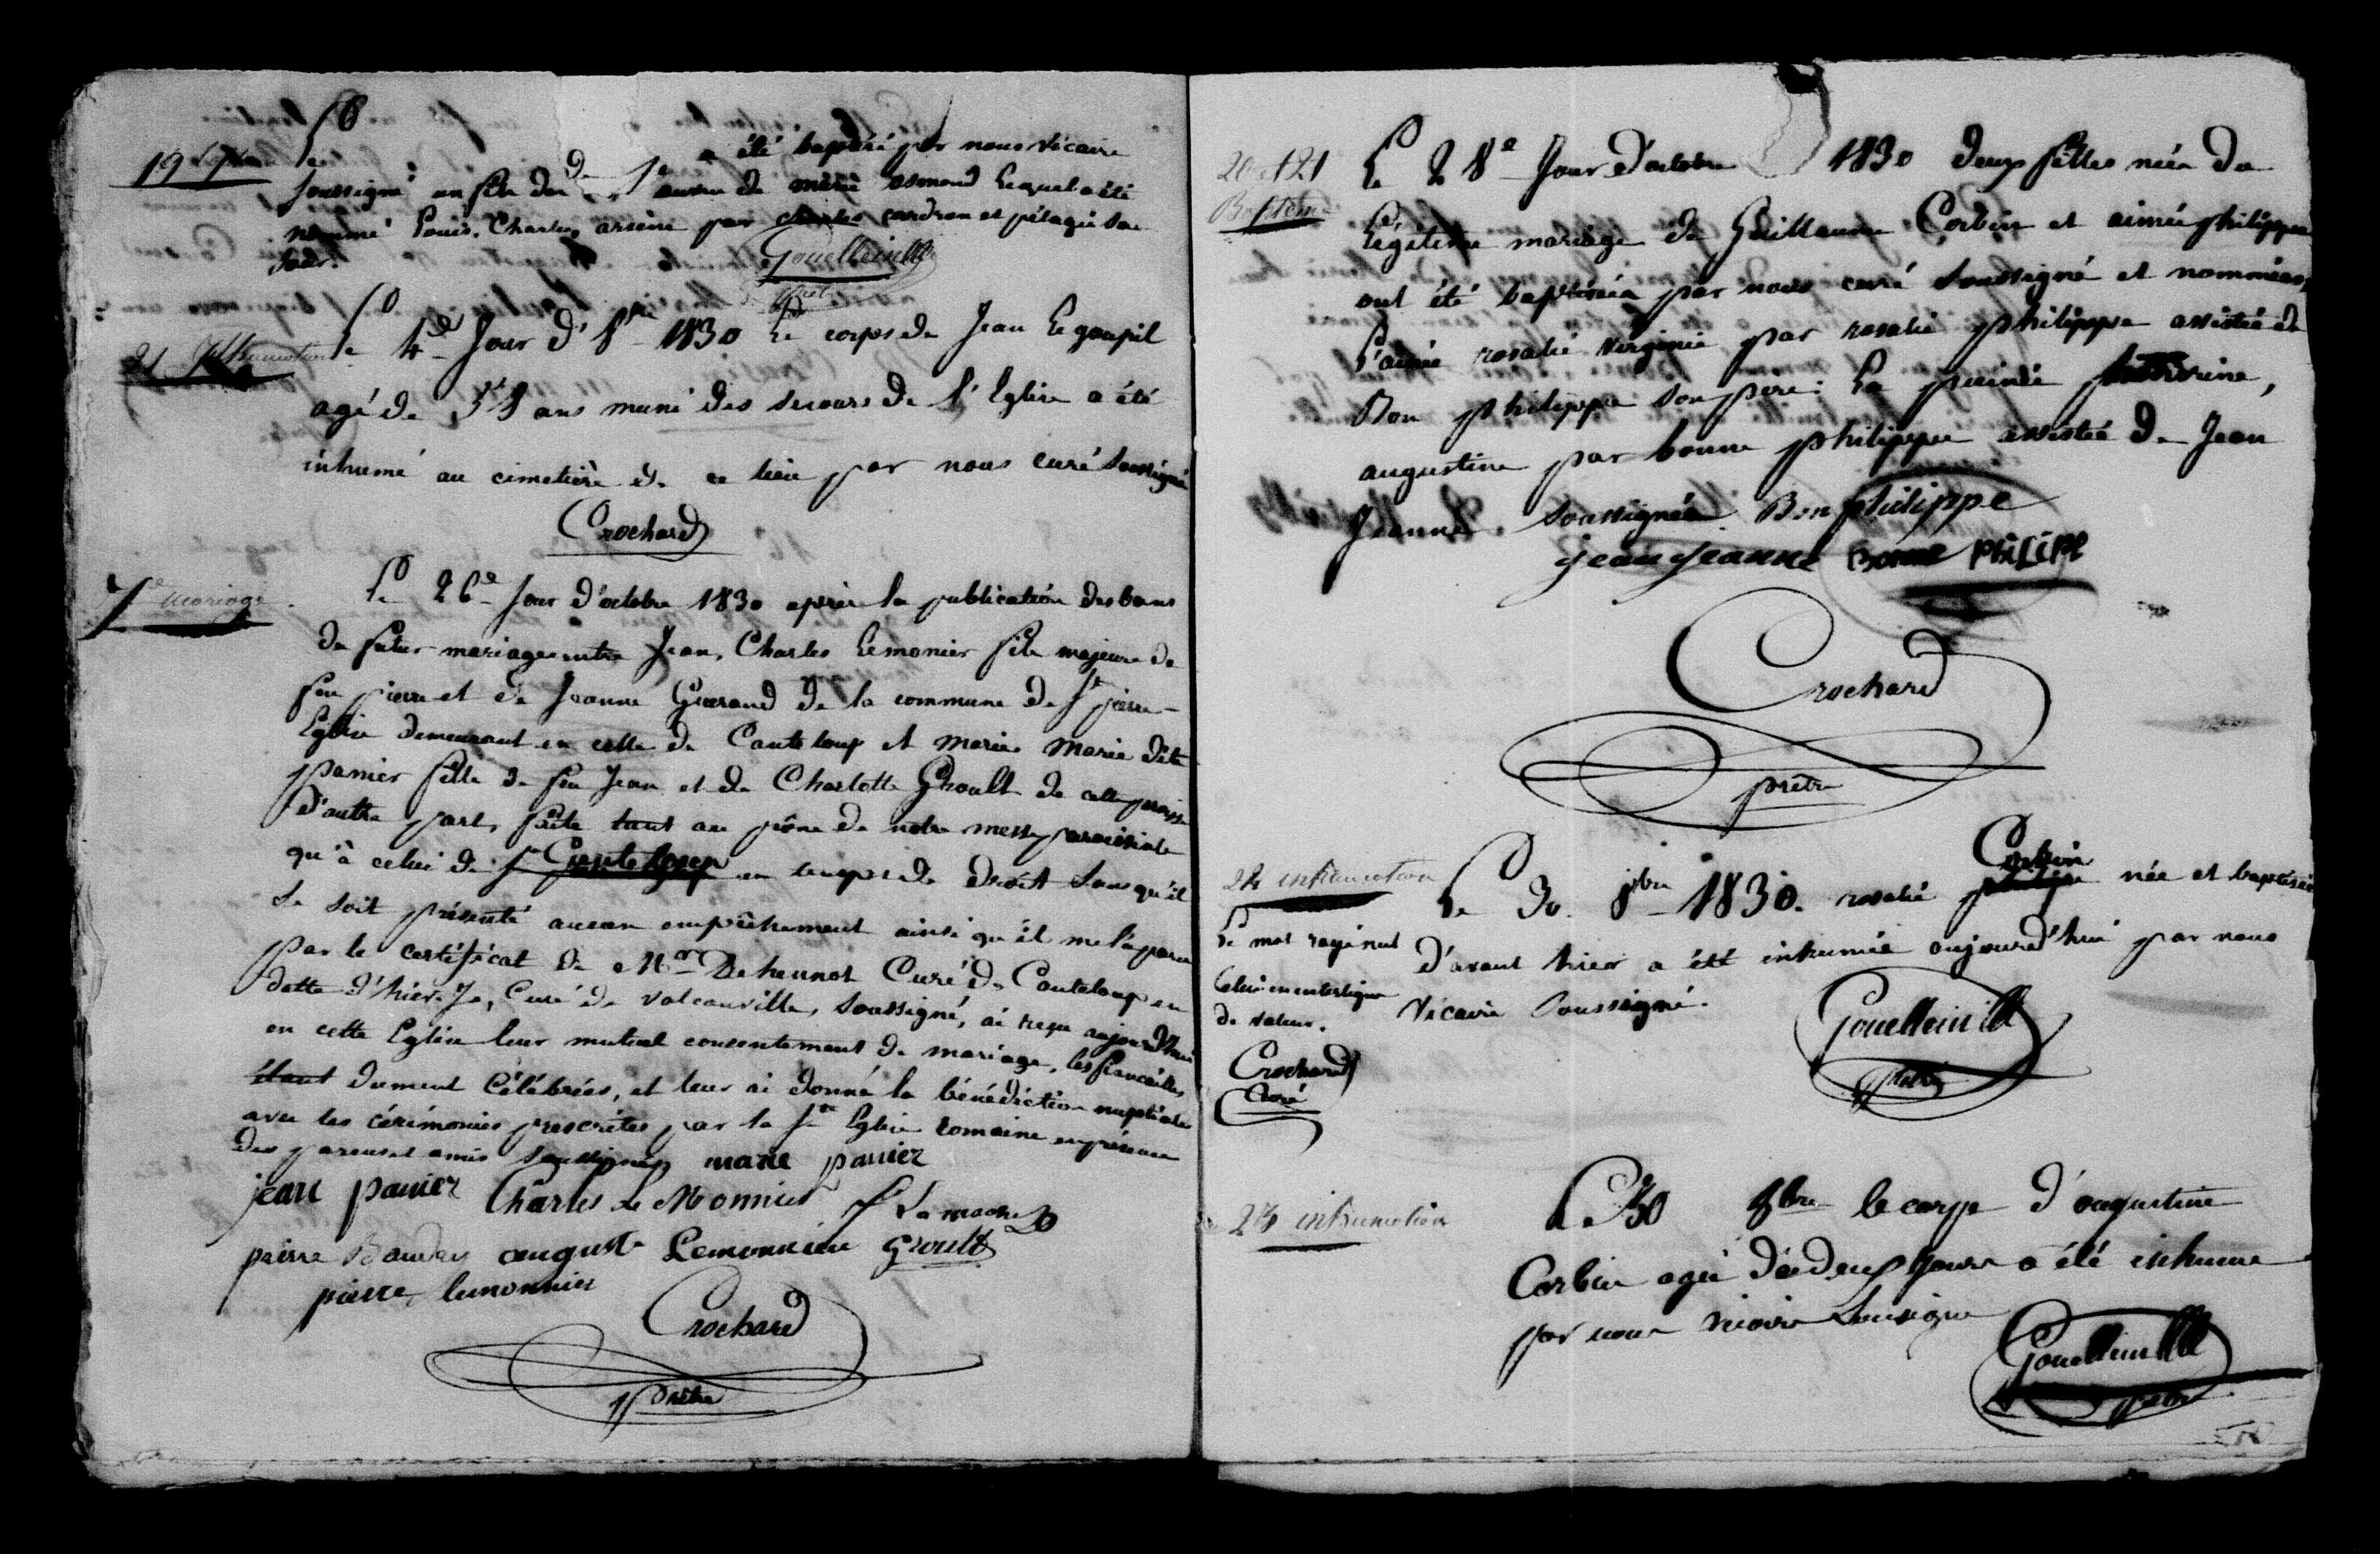 19
Le a été baptisé par nous vicaire
soussigné un fils de marie osmond lequel a été
nommé Louis, Charles, arsène par charles cardron et pélagie sa
sœur.
Gouelleinville
21 Inhumation
Le 4e Jour d'8bre 1830 le corps de Jean Legoupil
agé de ans muni des secours de l'Eglise a été
inhumé au cimetière de ce lieu par nous curé soussigné
Crochard
7e mariage
Le 26e Jour d'octobre 1830 après la publication des bans
de futur mariage entre Jean, Charles Lemonier fils majeur de
feu pierre et de Jeanne Guerand de la commune de St pierre-
Eglise demeurant en celle de Canteloup et marie Marie dite
panier fille de feu Jean et de Charlotte Groult de cette paroisse
d'autre part, faite tant au prône de notre messe paroissiale
qu'à celui de Canteloup en temps de droit sans qu'il
se soit présenté aucun empêchement ainsi qu'il m'est apparu
par le certificat de Mr Dehennot Curé de Canteloup en
datte d'hier. Je, Curé de valcanville, soussigné, ai reçu aujourd'hui
en cette Eglise leur mutuel consentement de mariage, les fiancailles
étant dument célébrées, et leur ai donné la bénédiction nuptiale
avec les cérémonies prescrites par la Ste Eglise romaine en présence
des parens et amis soussignés marie panier
jean panier Charles Le Monnier
pierre auguste Lemonnier Groult
pierre lemonnier
Crochard
prêtre
20 et 21
Baptême
Le 28e Jour d'octobre 1830 deux filles nées du
légitime mariage de Guillaume Corbin et aimée philippe
ont été baptisées par nous curé soussigné et nommées,
l'ainée rosalie virginie par rosalie philippe assistée de
Bon philippe son père: la puinée
augustine par bonne philippe assistée de Jean
Jeanne. soussignés. Bon philippe
jean jeanne Bonne PhiLiPe
Crochard
prêtre
22 inhumation
Le mot rayé nul
Celui en interligne
de valeur.
Crochard
Curé
Corbin
Le 30. 8bre 1830. rosalie née et baptisée
d'avant hier a été inhumée aujourd'hui par nous
vicaire soussigné.
Gouelleinville
prêtre
23 inhumation
Le 30 8bre le corps d'augustine
Corbin agée de deux jours a été inhumé
par nous vicaire soussigné
Gouelleinville
prêtre